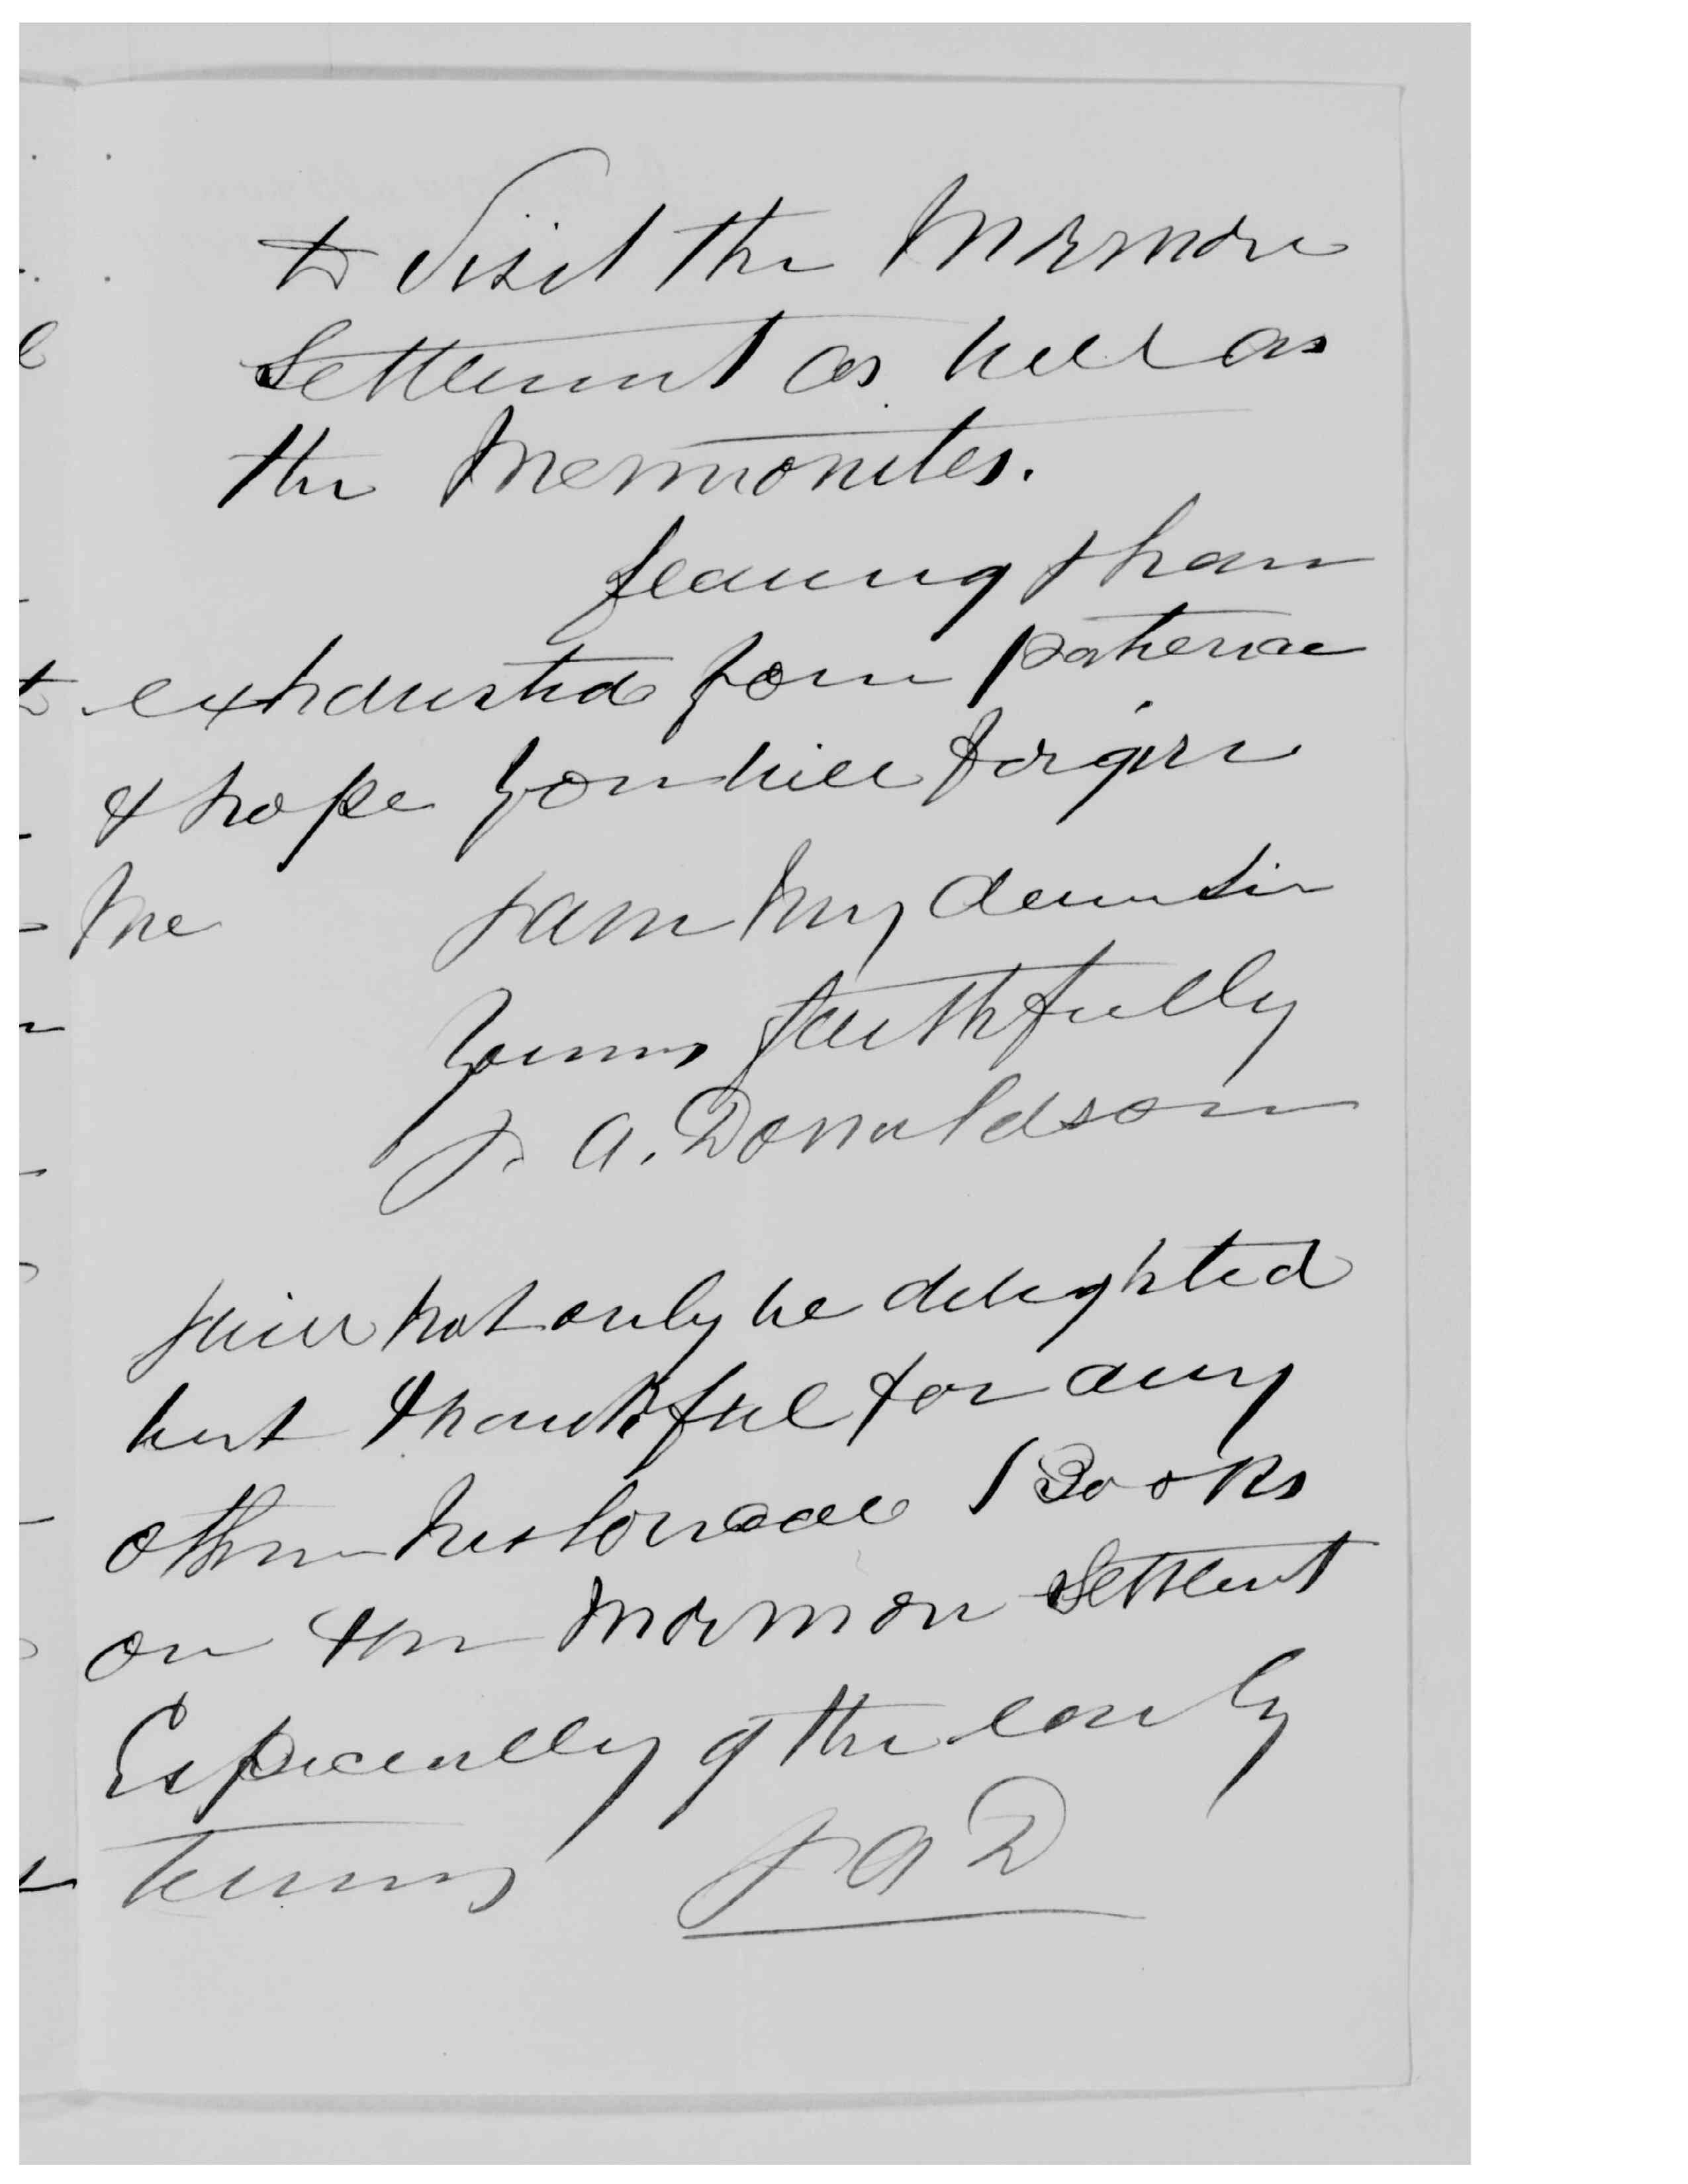 to visit the Mormon
Settlement as well as
the Mennonites.
fearing I have
exhausted your patience
& hope you will forgive
me I am my dear Sir
Yours faithfully
J. A. Donaldson
I will not only be delighted
but thankful for any
other historical Books
on the Mormon Settlent
Especially of the early
terms J A D